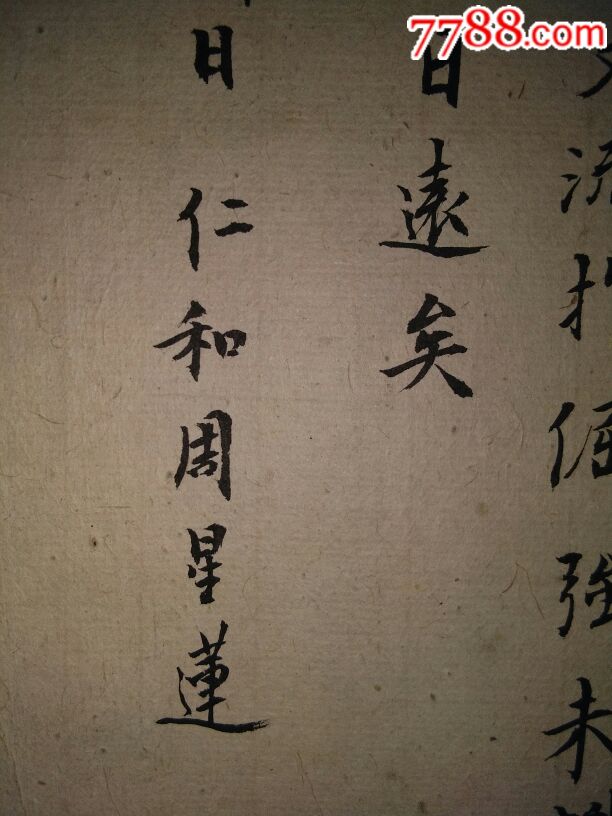 7788.com
流扌倔强未
日遠矣
日 仁和周星蓮